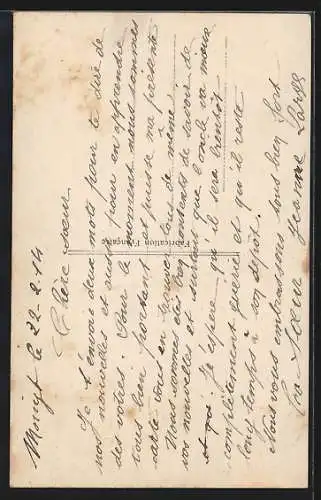 le 22-2-14
Chère Sœur
Je t'envoie deux mots pour te dire de
nos nouvelles et aussi pour en apprendre
des votres. Pour le moment nous sommes
tous bien portant et puisse ma présente
carte vous en trouver tous de même
Nous sommes très contents de savoir de
vos nouvelles et surtout que l'oncle va mieux
et que j'espère qu'il sera bientôt
complètement guerie et qu'il reste
longtemps à son dépôt.
Nous vous embrassons tous bien fort
Ta Sœur Jeanne
Fabrication Française